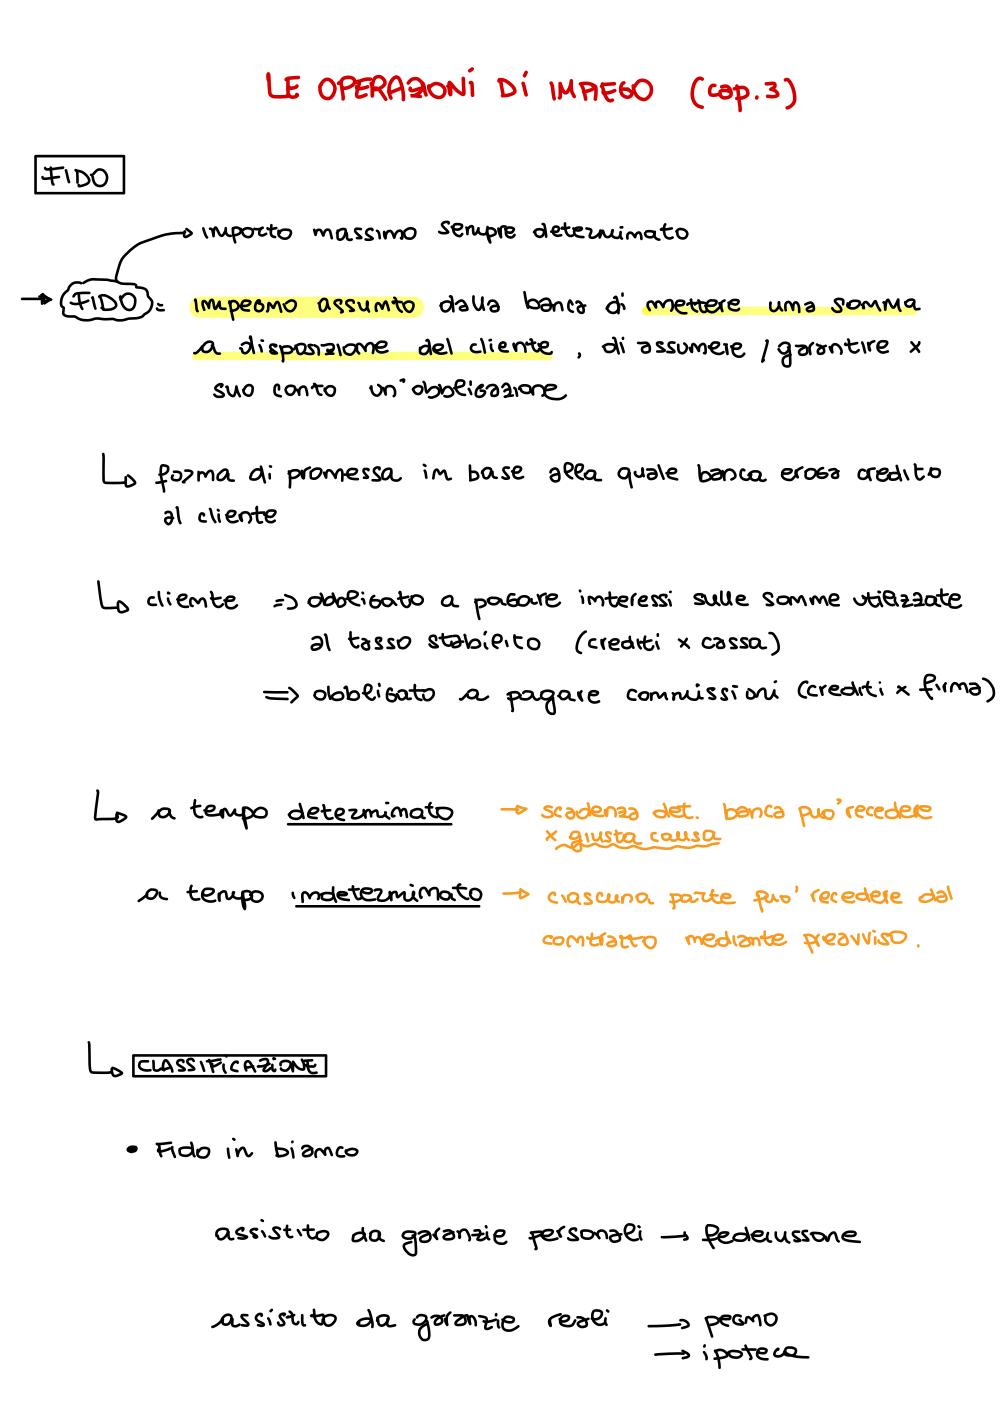 LE OPERAZIONI DI IMPIEGO (cap.3)
FIDO
importo massimo sempre determinato
FIDO = impegno assunto dalla banca di mettere una somma
a disposizione del cliente, di assumere / garantire x
suo conto un'obbligazione
forma di promessa in base alla quale banca eroga credito
al cliente
cliente => obbligato a pagare interessi sulle somme utilizzate
al tasso stabilito (crediti x cassa)
=> obbligato a pagare commissioni (crediti x firma)
a tempo determinato → scadenza det. banca può recedere
x giusta causa
a tempo indeterminato → ciascuna parte può recedere dal
contratto mediante preavviso.
CLASSIFICAZIONE
• Fido in bianco
assistito da garanzie personali → fedeiussone
assistito da garanzie reali → pegno
→ ipoteca